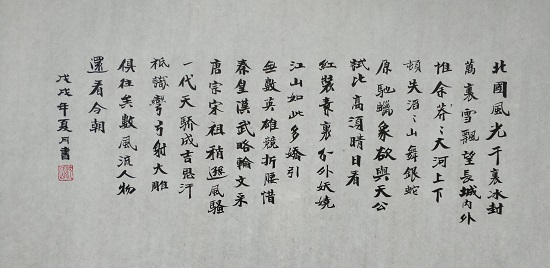 北國風光千裏冰封
萬裏雪飄望長城內外
惟余莽〻天河上下
頓失滔〻山舞銀蛇
原馳蠟象欲與天公
試比高須晴日看
紅裝素裹分外妖嬈
江山如此多嬌引
無數英雄競折腰惜
秦皇漢武略輸文采
唐宗宋祖稍遜風騷
一代天驕成吉思汗
祇識彎弓射大雕
俱往矣數風流人物
還看今朝
戊戌年夏月書